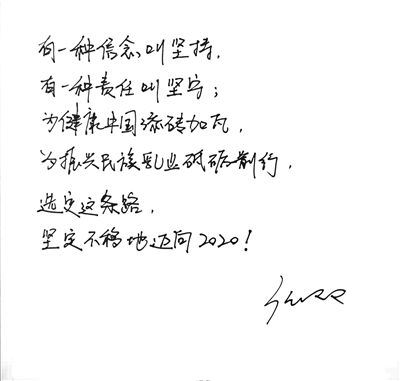 有一种信念叫坚持,
有一种责任叫坚守;
为健康中国添砖加瓦,
为振兴民族乳业砥砺前行,
选定这条路,
坚定不移地迈向2020!